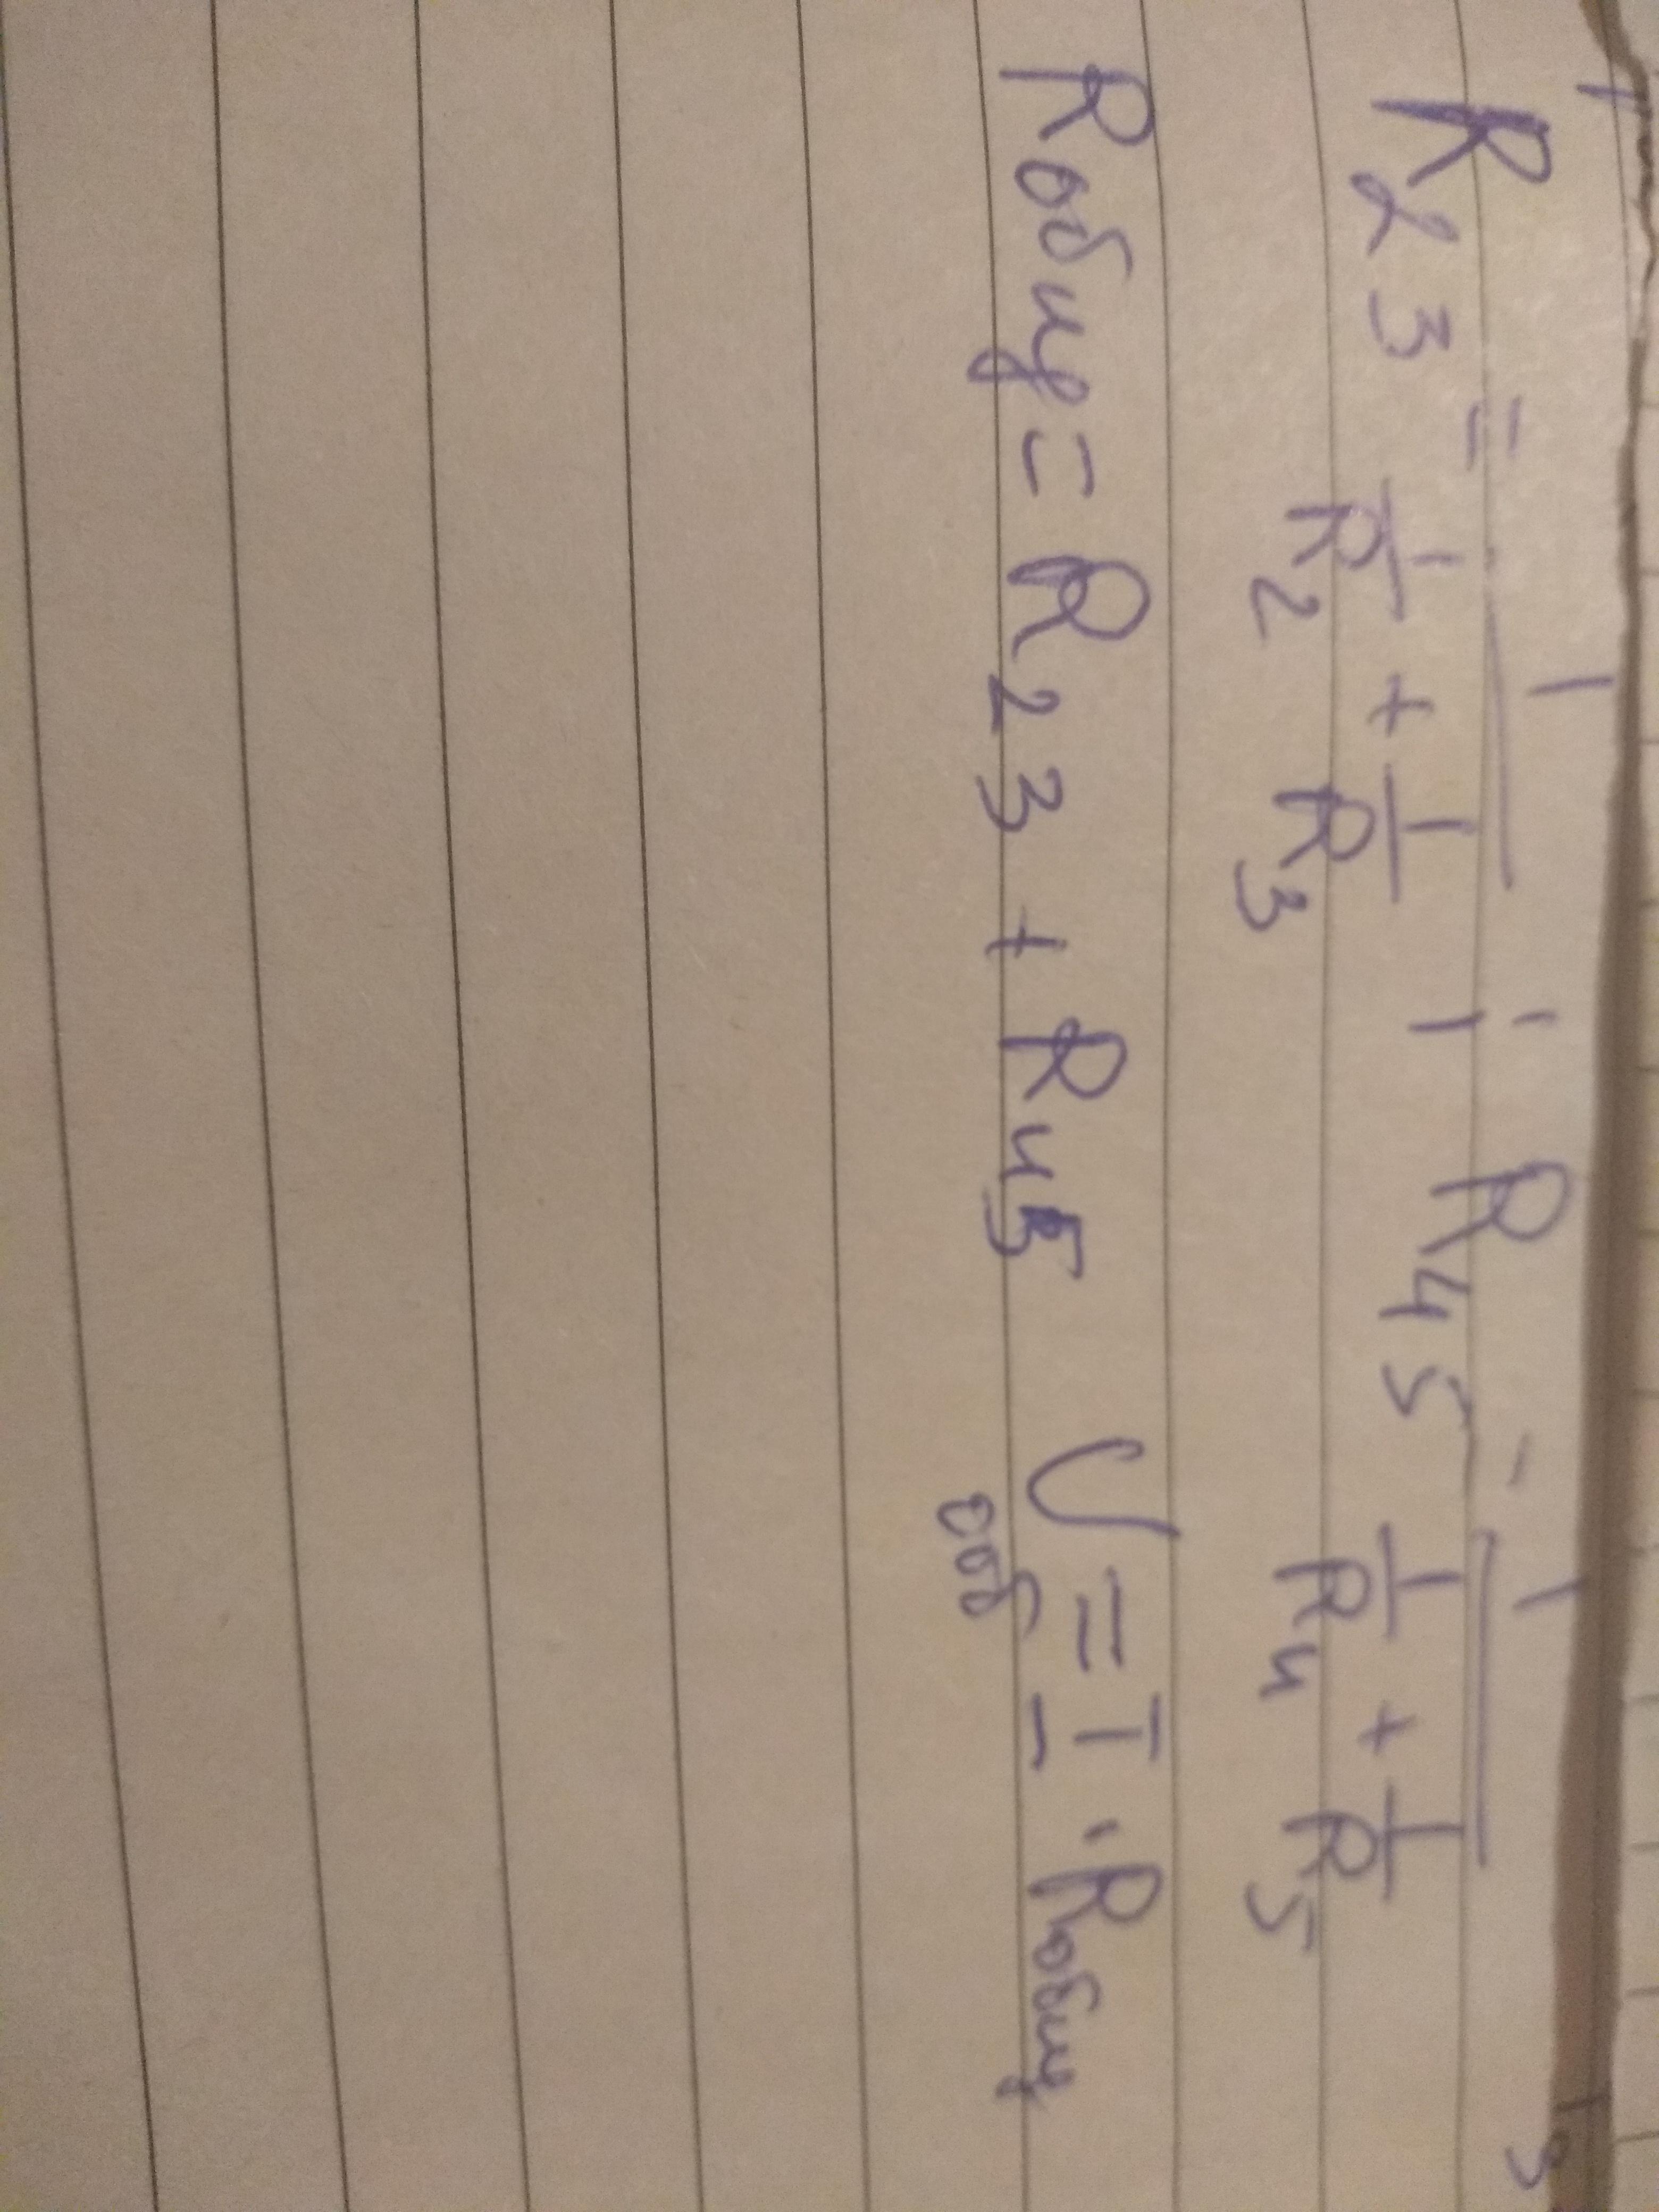 R23 = 1/(1/R2 + 1/R3) ; R45 = 1/(1/R4 + 1/R5)
Rобщ = R23 + R45 U = I · Rобщ